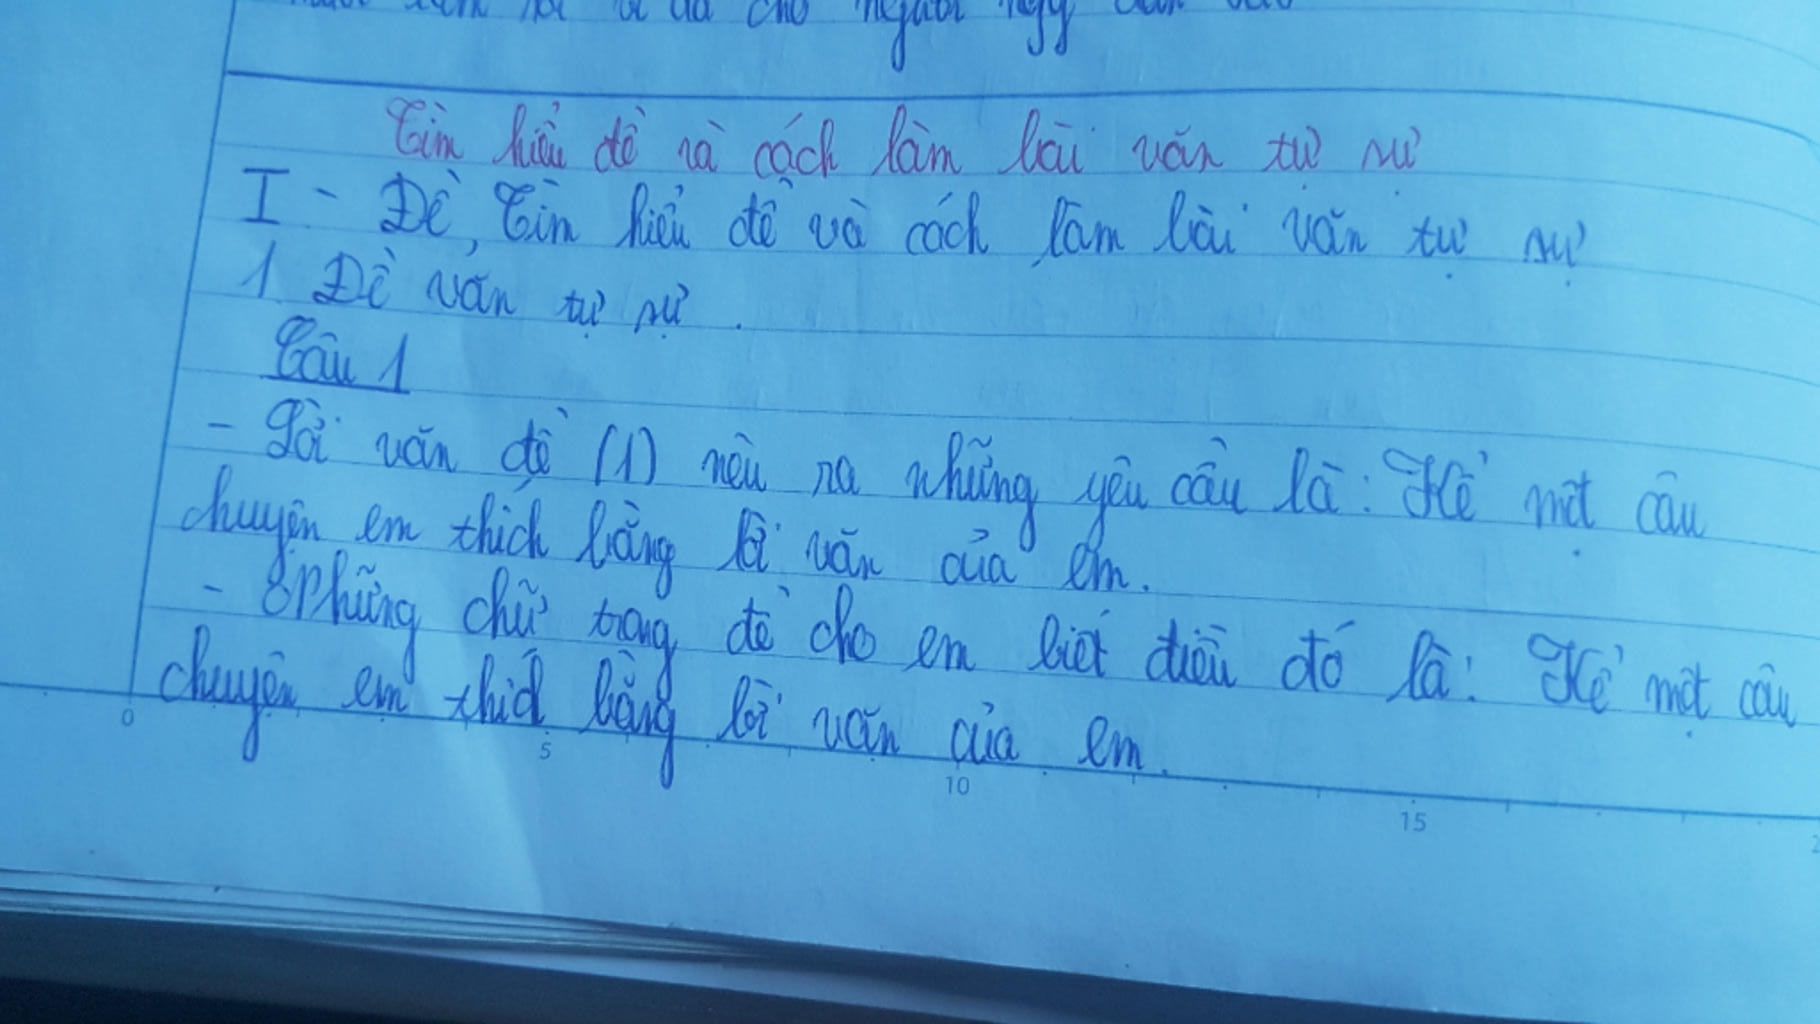 cho người ngy
Tìm hiểu đề và cách làm bài văn tự sự
I - Đề, Tìm hiểu đề và cách làm bài văn tự sự
1 Đề văn tự sự.
Câu 1
- Lời văn đề (1) nêu ra những yêu cầu là: Kể một câu
chuyện em thích bằng lời văn của em.
- Những chữ trong đề cho em biết điều đó là: Kể một câu
chuyện em thích bằng lời văn của em.
0 5 10 15